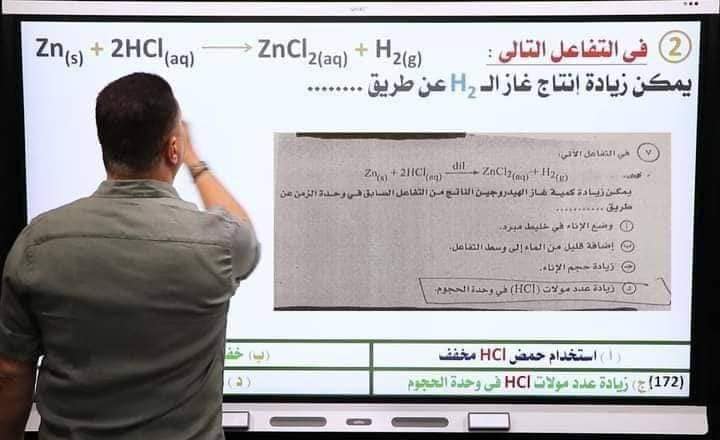 ② فى التفاعل التالى :
Zn(s) + 2HCl(aq) ⟶ ZnCl2(aq) + H2(g)
يمكن زيادة إنتاج غاز الـ H2 عن طريق ........
٧ في التفاعل الآتي:
Zn(s) + 2HCl(aq) dil⟶ ZnCl2(aq) + H2(g)
يمكن زيادة كمية غاز الهيدروجين الناتج من التفاعل السابق في وحدة الزمن عن
طريق ...........
أ وضع الإناء في خليط مبرد.
ب إضافة قليل من الماء إلى وسط التفاعل.
ج زيادة حجم الإناء.
د زيادة عدد مولات (HCl) في وحدة الحجوم.
(أ) استخدام حمض HCl مخفف
(ب) خف
(172) (ج) زيادة عدد مولات HCl فى وحدة الحجوم
(د)